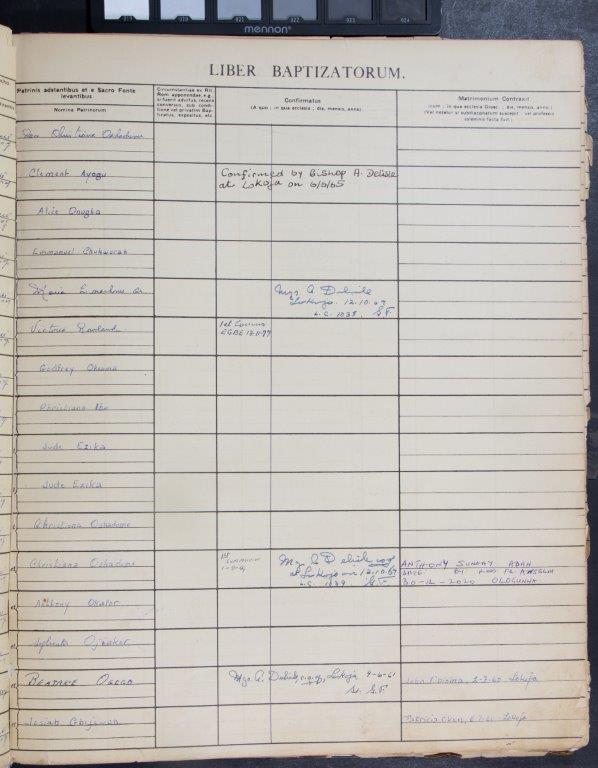 019 022 023 024
mennon
LIBER BAPTIZATORUM.
Patrinis adstantibus et e Sacro Fonte
levantibus
Nomina Patrinorum
Circumstantiae ex Rit.
Rom. apponendae, e.g.
si fuerit adultus, recens
conversus, sub condi-
tione vel privatim Bap-
tizatus, expositus, etc.
Confirmatus
(A quo; in qua ecclesia; die, mensis, anno)
Matrimonium Contraxit
(cum; in qua ecclesia Dioec.; die, mensis, anno.)
(Vel notetur si subdiaconatum suscepit vel professio
solemnis facta fuit)
Christiana Oshadume
Clement Ayogu
Confirmed by Bishop A. Delisle
at Lokoja on 6/6/65
Alice Onugha
Emmanuel Chukwurah
Maria
Mgr A Delisle
Lokoja. 12.10.67
L.C. 1038. S.F.
Victoria Rowland
1st Commu
EGBE 12-11-77
Godfrey
Christiana Ibe
Jude Ezika
Jude Ezika
Christiana Oshadume
Christiana Oshadume
1st Communion
Mgr A Delisle cssp
at Lokoja on 12.10.67
L.C. 1039. S.F.
ANTHONY SUNDAY ADAH
30-12-2020 OLOGUNHA
Anthony Okafor
Ojiaekor
BEATRICE OGOGO
Mgr A. Delisle, c.s.sp, Lokoja 9-6-61
S.F.
John 2-7-60 Lokoja
Josiah Gbijewoh
Patricia Lokoja